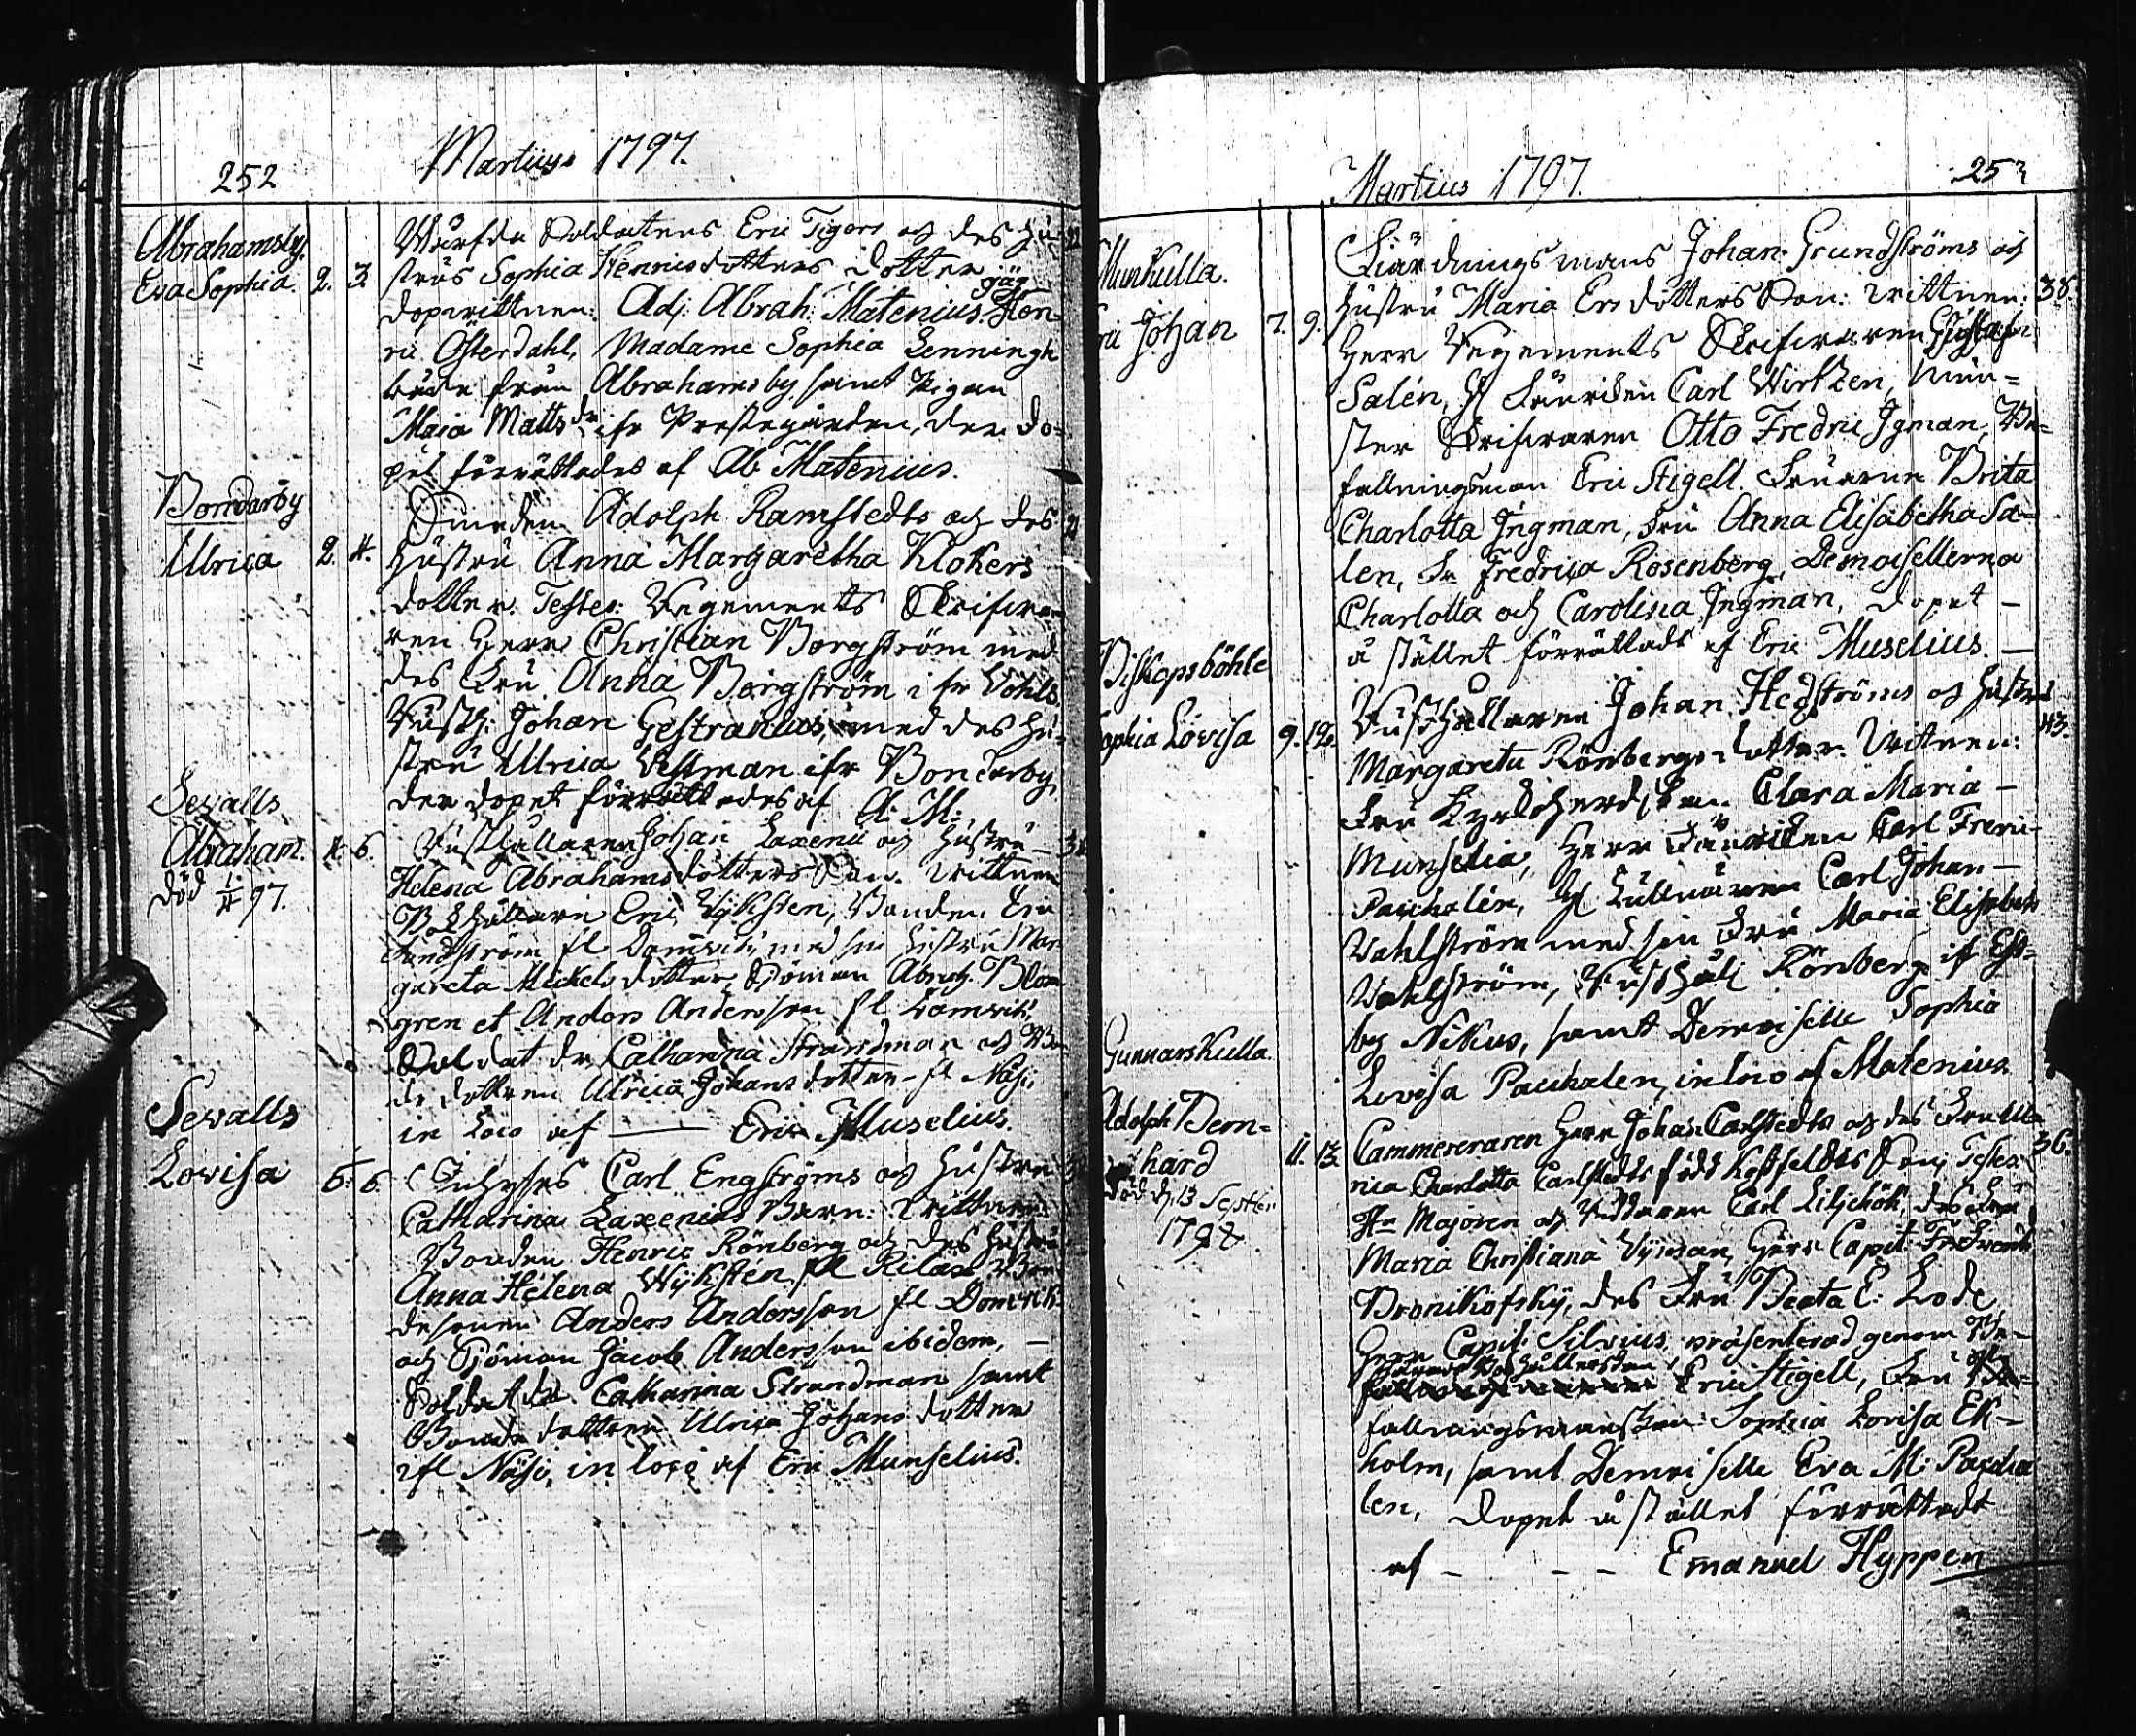 252
Martius 1797.
Abrahamsby.
Eva Sophia. 2. 3
Soldatens Eric Tigers och des Hu-
strus Sophia Henricsdotters dotter
dopvittnen: Adj. Abrah: Matenius. Jäg. Hen-
ric Österdahl, Madame Sophia Lenningh
både från Abrahamsby, samt Pigan
Maja Mattsdr ifr Prestegården, der do-
pet förrättades af Ab Matenius.
Bondarby
Ulrica 2. 4.
Smeden Adolph Ramstedts och des
Hustru Anna Margaretha Klokers
dotter. Testes: Regements Skrifva-
ren Herr Christian Bergström med
des Fru Anna Bergström ifr
Rusth: Johan Gestranius, med des Hu-
stru Ulrica ifr Bondarby
der dopet förrättades af A: M:
Sevalls
Abraham. 4. 6.
död 1/4 97.
Rusthållaren Johan Laxenii och Hustru
Helena Abrahamsdotters Son. Vittnen
Bolhållare Eric Wiksten, Bonden Eric
Sundström fl Domsvik med sin Hustru Mar-
gareta Mickelsdotter, Sjöman Abrah. Blom
gren et Anders Andersson fl Domsvik,
Soldat dr Catharina Strandman och Bon
de dottren Ulrica Johansdotter fl Näse,
in Loco af — Eric Muselius.
Sevalls
Lovisa 5. 6.
Carl Engströms och Hustru
Catharina Laxenias Barn: Vittnen
Bonden Henric Rönberg och des Hustru
Anna Helena Wijkstén fl Rilax Bon
desonen Anders Andersson fl Domsvik
och Sjöman Jacob Andersson ibidem, —
Soldat dr Catharina Strandman samt
Bonde dottren Ulrica Johans dotter
ifl Näse, in loco af Eric Munselius.
Martius 1797.
253
Munkulla.
Eric Johan 7. 9.
Fiärdingsmans Johan Grundströms och
Hustru Maria Ersdotters Son: Vittnen: 38.
Herr Regements Skrifvaren Gustaf
Salén, H Länsiden Carl Wirtzen, Mön-
ster Skrifvaren Otto Fredric Igman, Be-
fallningsman Eric Stigell. Fruarna Brita
Charlotta Ingman, Fru Anna Elisabetha Sa-
len, Fr Fredrica Rosenberg, Demoisellerna
Charlotta och Carolina Ingman, dopet —
å stället förrättadt af Eric Muselius. —
Biskopsböhle
Sophia Lovisa 9. 12.
Rusthållaren Johan Hedströms och Hustru
Margareta Rönbergs dotter. Vittnen: 43.
Fru Kyrkoherdskan Clara Maria —
Munselia, Herr Carl Fredric
Pacchalén, H Carl Johan —
Wahlström med sin Fru Maria Elisabeth
Wahlström, Rusthåll Rönberg if Est-
by Nikus, samt Demoiselle Sophia
Lovisa Pacchalen, in loco af Matenius.
Gunnarskulla.
Adolph Bern-
hard 11. 13.
död d. 13 Septber
1798
Cammereraren Herr Johan Carlstedts och des Fru Ul-
rica Charlotta Carlstedts född Son; Testes: 36.
Hr Majoren och Riddaren Carl Liljehöök, des Fru
Maria Christiana, Herr Capit:
Bronikofsky, des Fru Beata E: Lode,
Herr Capit: Silvius, præsenterad genom
Eric Stigell, Fru Be-
fallningsmanskan Sophia Lovisa Ek-
holm, samt Demoiselle Eva M: Pacchα
len, dopet å stället förrättadt
af - - - Emanuel Hyppen